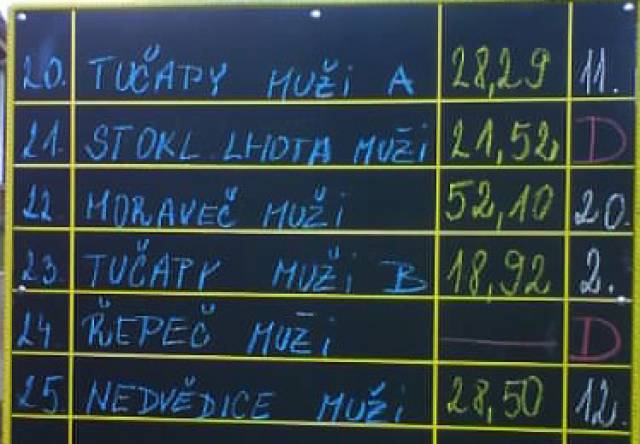 20. TUČAPY MUŽI A 28,29 11.
21. STOKL. LHOTA MUŽI 21,52 D
22. MORAVEČ MUŽI 52,10 20.
23. TUČAPY MUŽI B 18,92 2.
24 ŘEPEČ MUŽI — D
25. NEDVĚDICE MUŽI 28,50 12.